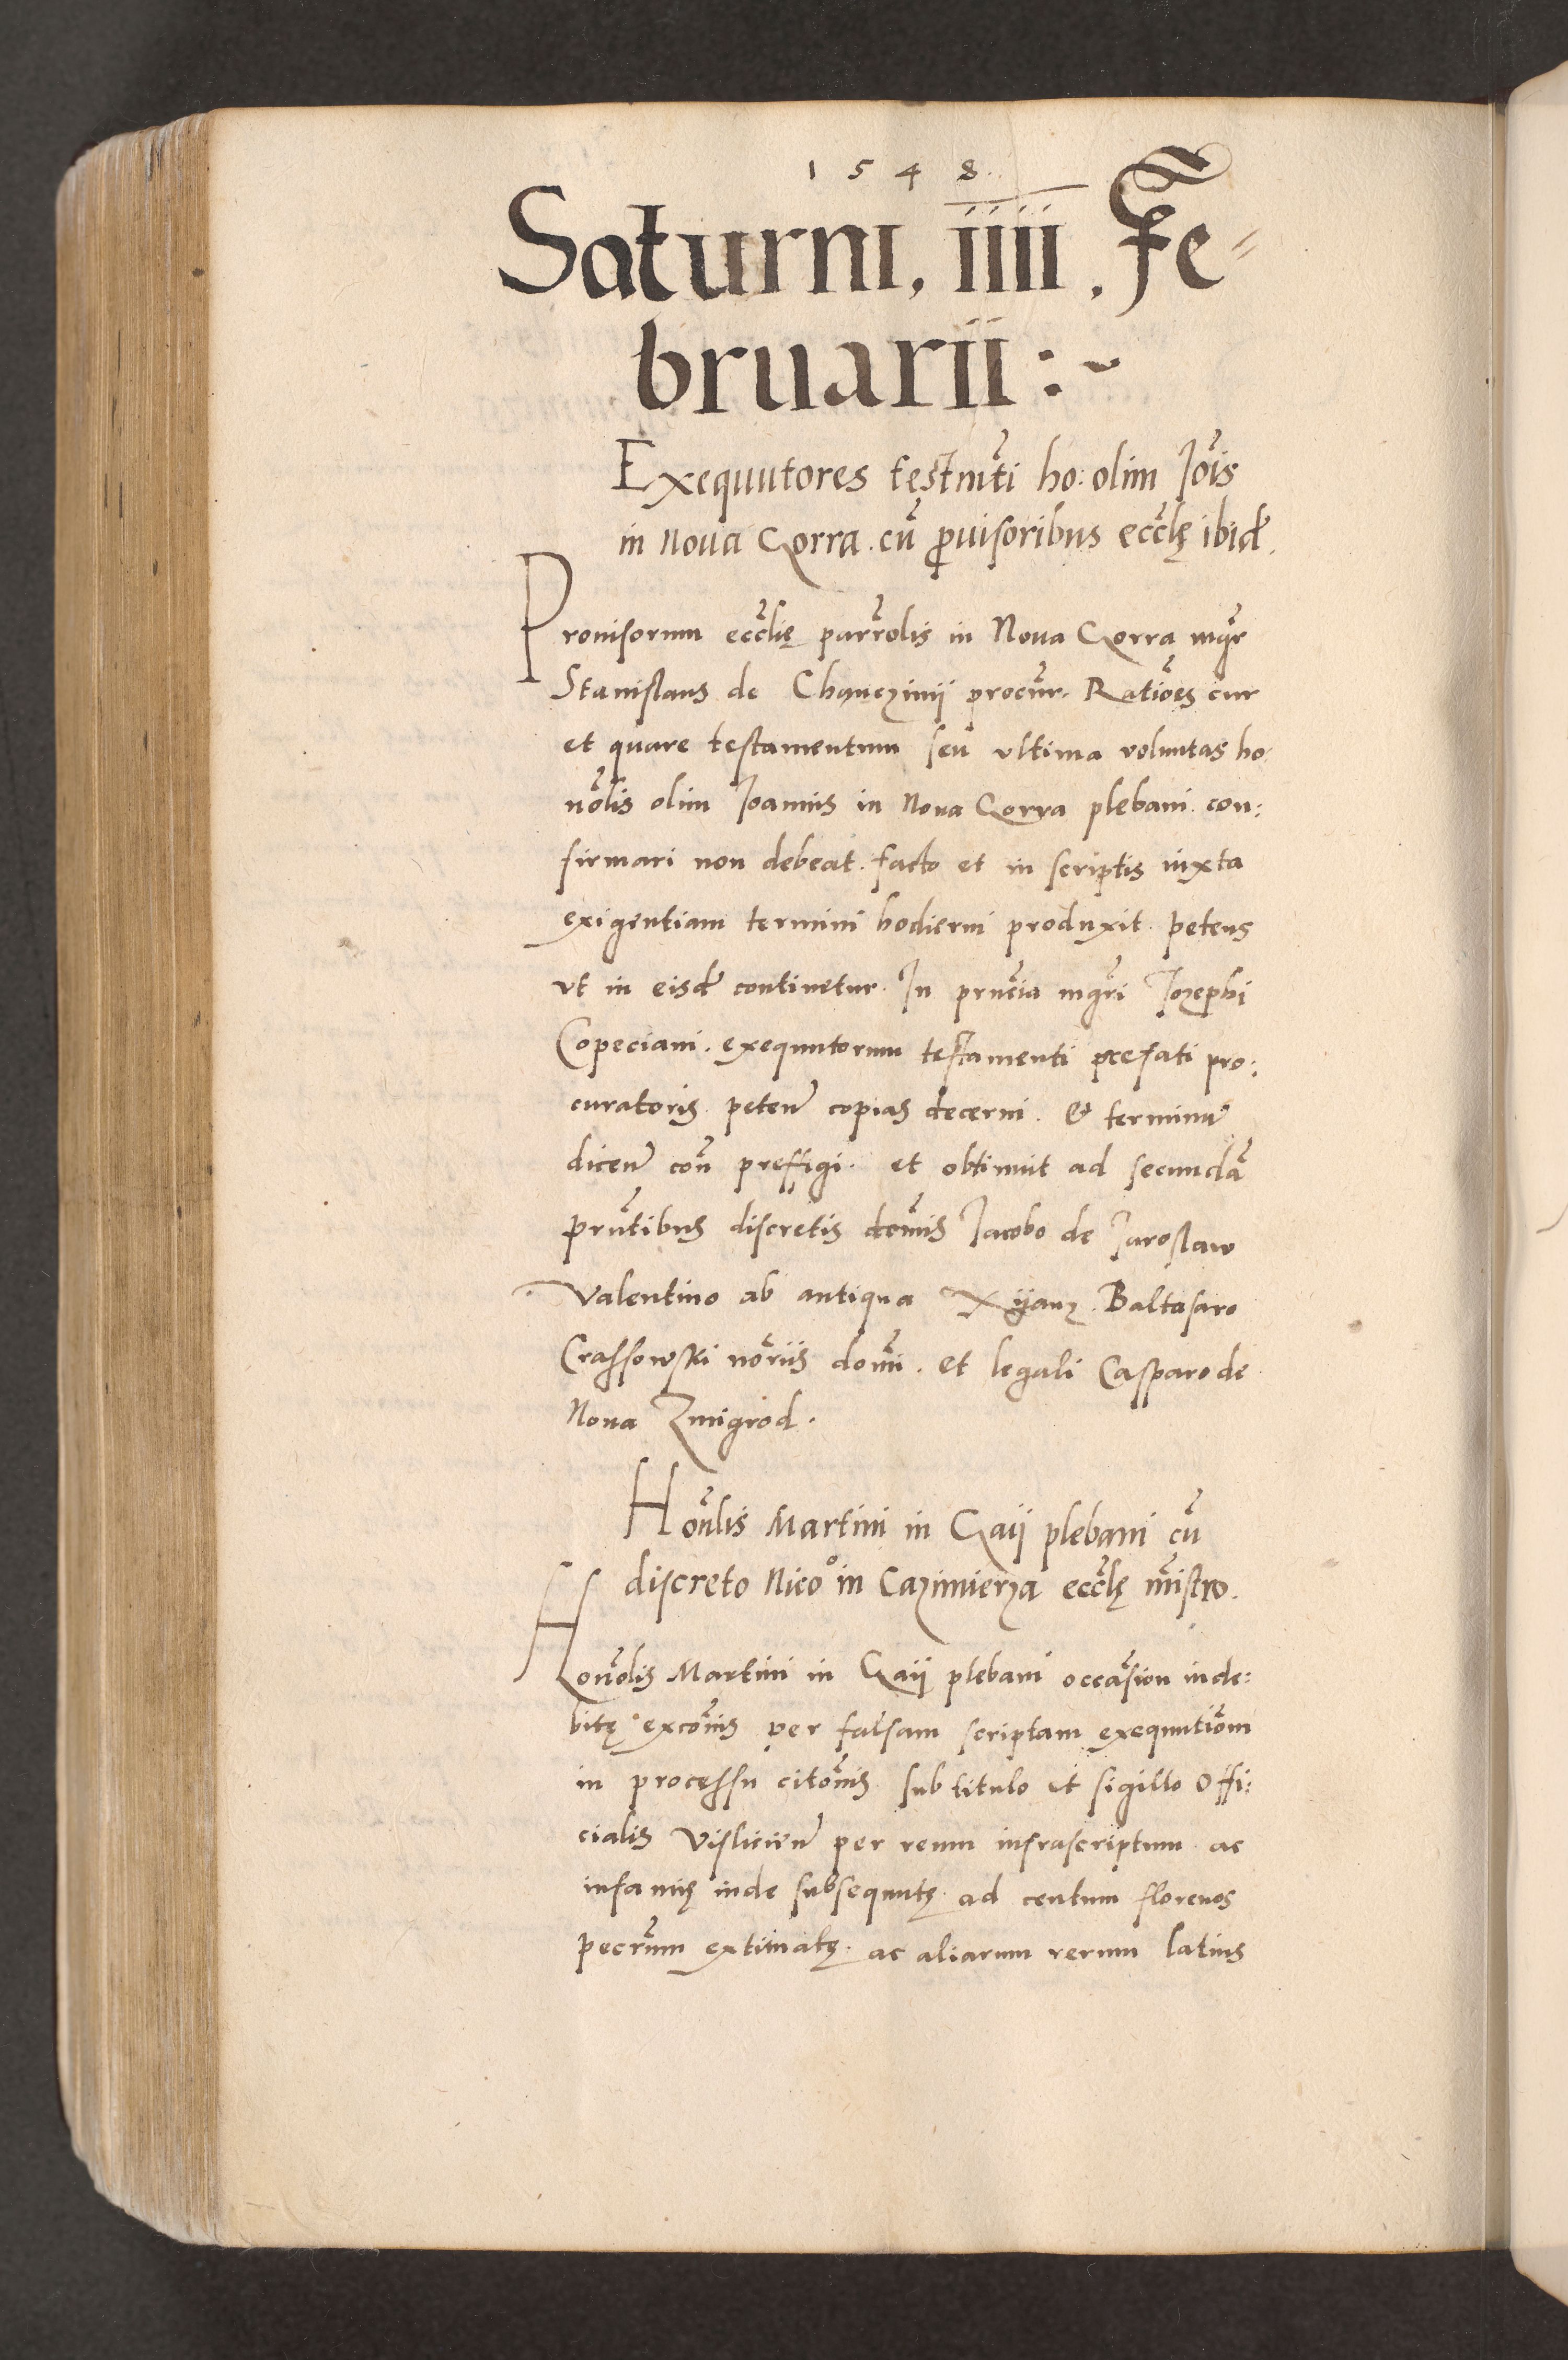 1548.
Saturni, iiii. Fe-
bruarii:~
Exequutores testmti ho: olim Jois
in Noua Gorra. cu puisoribus eccle ibid.
Prouisorum ecclie parrolis in Noua Gorra mgr
Stanislaus de Chanczinij procur. Ratioes cur
et quare testamentum seu vltima voluntas ho:
nolis olim Joannis in Noua Gorra plebani. con:
firmari non debeat. facto et in scriptis iuxta
exigentiam termini hodierni produxit. petens
vt in eisd continetur. In prncia mgri Jozephi
Copeciani. exequutorum testamenti prefati pro:
curatoris. peten copias decerni. & terminu
dicen con preffigi. et obtinuit ad secunda
prntibus discretis domis Jacobo de Jaroslaw
Valentino ab antiqua Xyanz. Baltasaro
Crassowski noriis domi. et legali Casparo de
Noua Zmigrod.
Honlis Martini in Gaij plebani cu
discreto Nico in Cazimierza eccle mistro.
Honolis Martini in Gaij plebani occasion inde:
bite excomis per falsam scriptam exequutiom
in processu citomis sub titulo et sigillo Offi:
cialis Visliciien per reum infrascriptum ac
infamie inde subsequute. ad centum florenos
pecrum extimate. ac aliarum rerum latius